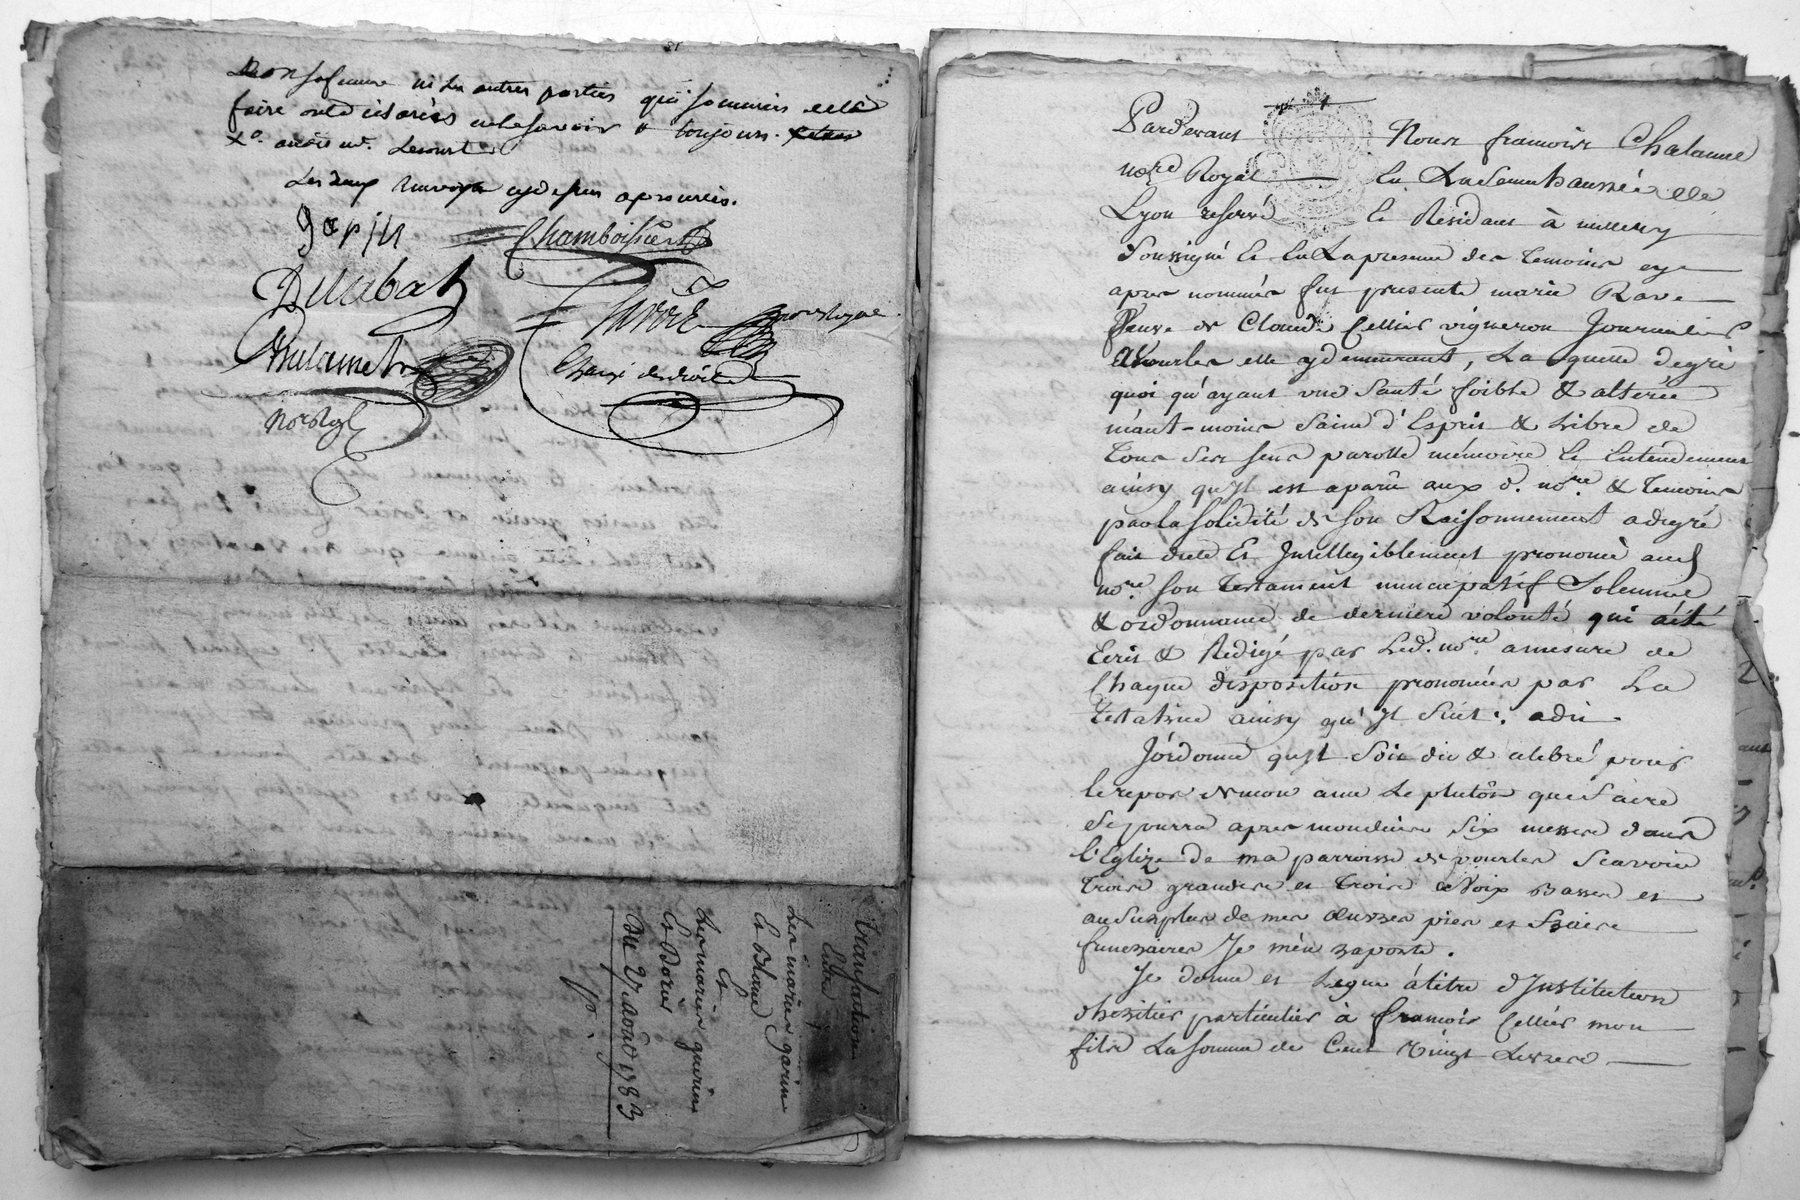 ni les autres parties qui sommées de le
faire ont déclarés ne le savoir & toujours
Les deux renvoys cydessus aprouvés.
Chamboissier
Delabat
Chalamel
Nore Rgl
Transaction
Entre
Les mariés garin
Et Blanc
Et
Les mariés guerin
Et Dorier
Du 27 aoust 1783
Pardevant Nous francois Chalamel
nore Royal En La Senechaussée de
Lyon reservé Et Residant à millery
Soussigné Et En La presence des temoins cy
apres nommés fut presente marie Rave
veuve de Claude Cellier vigneron Journalier
de vourles elle y demeurant, La quelle de gré
quoi qu'ayant une Santé foible & altérée
néant-moins Saine d'Esprit & Libre de
tous Ses Sens parolle mémoire Et Entendement
ainsy qu'Il est aparû aux d. nore & temoins
par la solidité de son Raisonnement a de gré
fait dicté Et Intelligiblement prononcé aud
nore son testament nuncupatif Solemnel
& ordonnance de derniere volonté qui a été
Ecrit & Redigé par Led. nore amesure de
Chaque disposition prononcée par La
testatrice ainsy qu'Il Suit: a dit.
J'ordonne qu'Il Soit dit & celebré pour
le repos de mon ame Le plutôt que faire
Se pourra apres mon deces Six messes dans
l'Eglize de ma parroisse de vourles Scavoir
trois grandes et trois a Voix Basses et
au Surplus de mes œuvres pies et fraix
funeraires Je m'en raporte.
Je donne et Legue à titre d'Institution
hereditaire particulier à francois Cellier mon
fils La somme de Cent vingt Livres